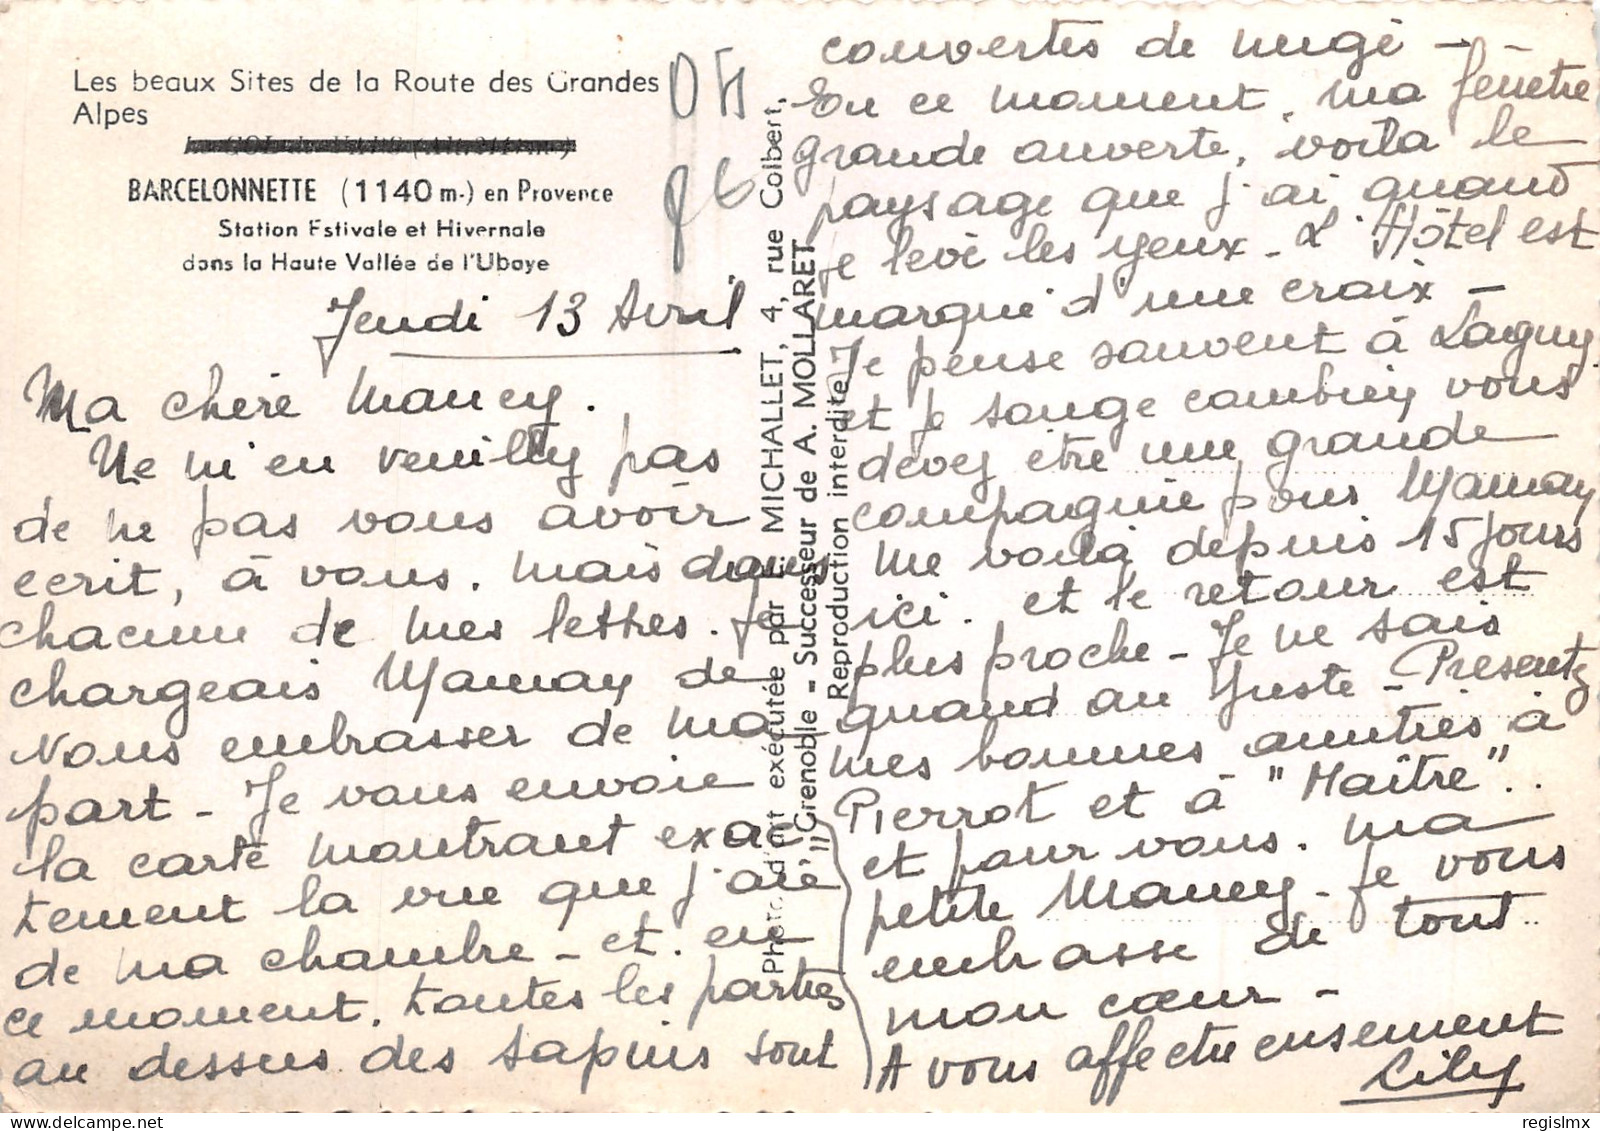 Les beaux Sites de la Route des Grandes
Alpes
BARCELONNETTE (1140 m.) en Provence
Station Estivale et Hivernale
dans la Haute Vallée de l'Ubaye
Jeudi 13 Avril
Ma chère Mancy.
Ne m'en veuillez pas
de ne pas vous avoir
ecrit, à vous. mais dans
chacune de mes lettres. Je
chargeais Maman de
vous embrasser de ma
part - Je vous envoie
la carte montrant exac
tement la vue que j'ai
de ma chambre - et. en
ce moment. toutes les parties
au dessus des sapins sont
Photo. d'art exécutée par E. MICHALLET, 4, rue Colbert,
Grenoble - Successeur de A. MOLLARET
Reproduction interdite
couvertes de neige -
En ce moment, ma fenêtre
grande ouverte, voila le
paysage que j'ai quand
je levè les yeux - L'Hôtel est
marqué d'une croix -
Je pense souvent à Lagny
et je songe combien vous
devez être une grande
compagnie pour Maman
Me voilà depuis 15 jours
ici. et le retour est
plus proche - Je ne sais
quand au juste - Présentez
mes bonnes amitiés à
Pierrot et à "Maître"..
et pour vous. ma
petite Mancy - Je vous
embrasse de tout
mon cœur -
A vous affectueusement
Lily
regislmx